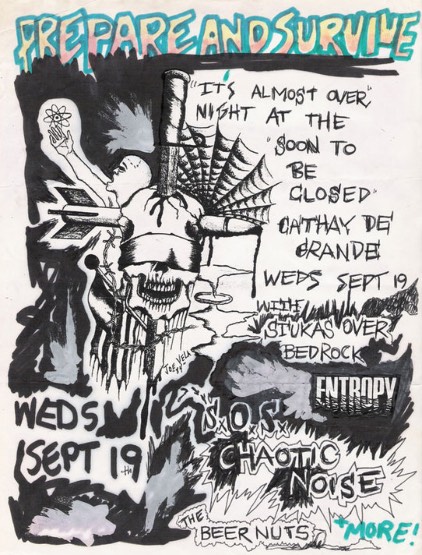 PREPARE AND SURVIVE
"IT'S ALMOST OVER"
NIGHT AT THE
"SOON TO
BE
CLOSED"
CATHAY DE
GRANDE
WEDS SEPT 19
WITH
STUKAS OVER
BEDROCK
ENTROPY
S.O.S.
CHAOTIC
NOISE
THE BEER NUTS
+MORE!
WEDS
SEPT 19
TH
JOE VELA